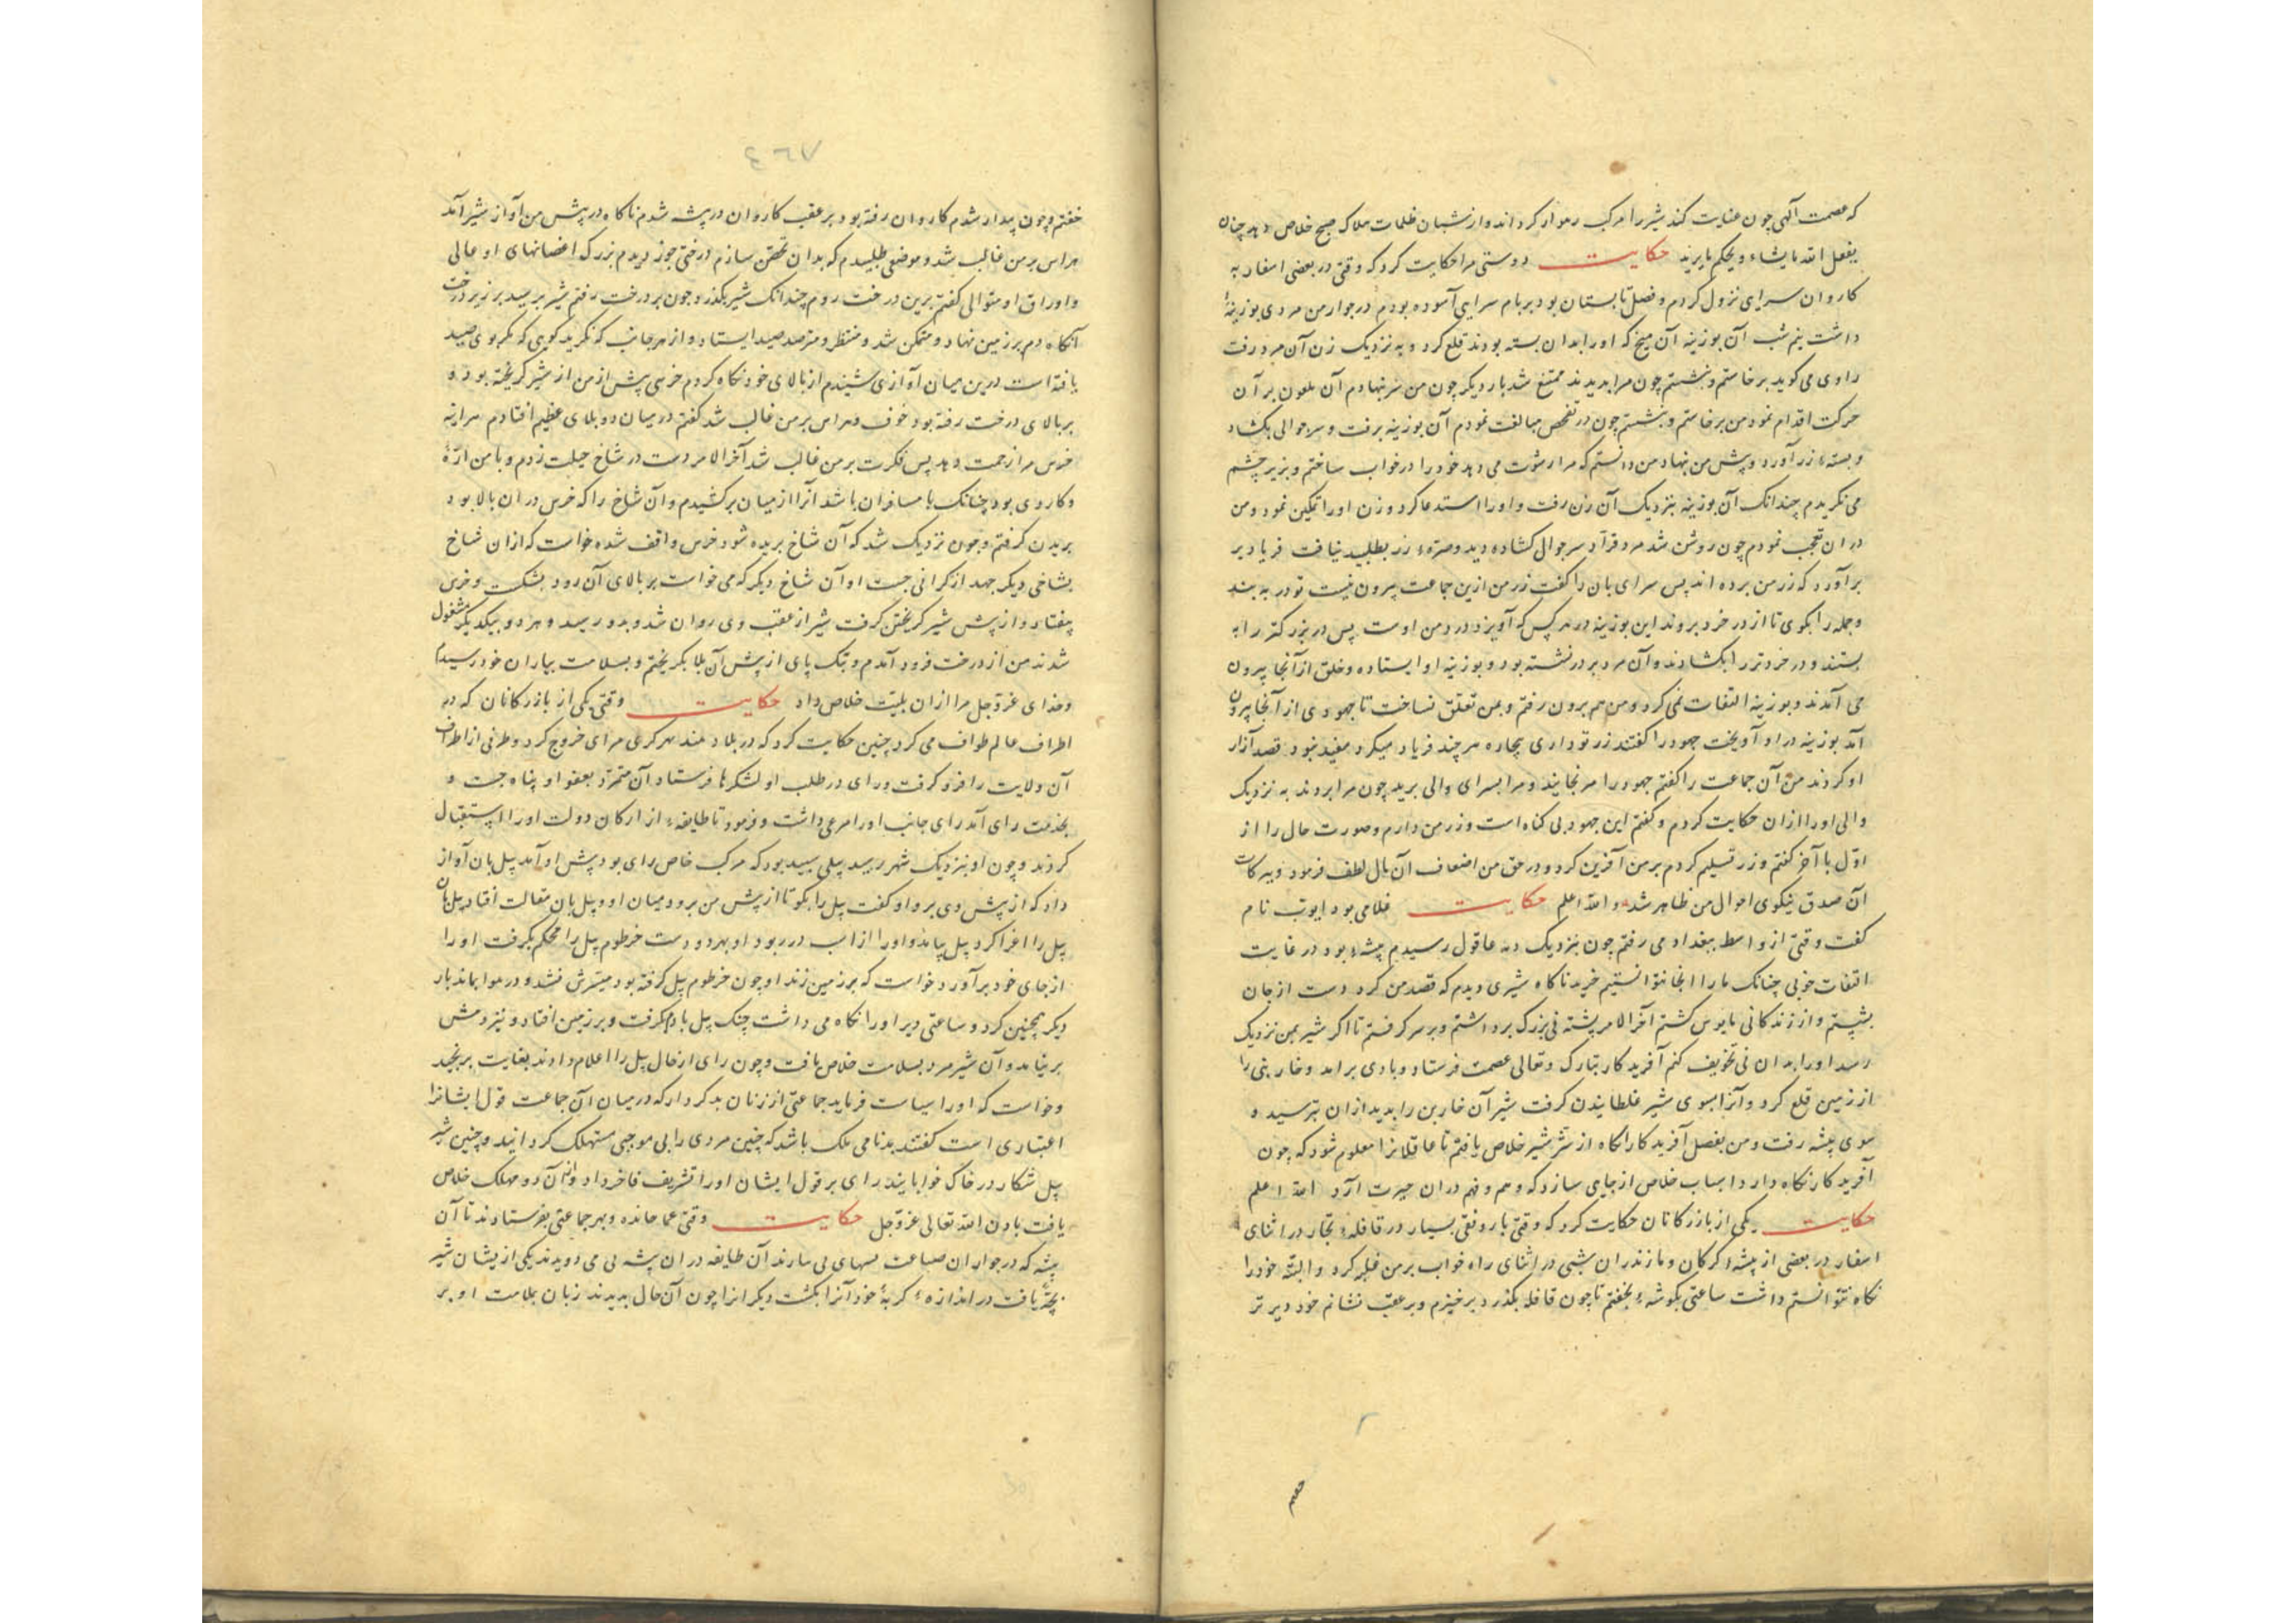 که عصمت آلهی چون عنایت کند شیر را مرکب رهوار کرداند و از شبان ظلمات ملاک صبح خلاص دهد چنان
یفعل الله مایشاء ویحکم مایرید حکایت دوستی مرا حکایت کرد که وقتی در بعضی اسفار به
کاروان سرای نزول کردم و فصل تابستان بود بر بام سرای آسوده بودم در جوار من مردی بوزینهٔ
داشت نیم شب آن بوزینه آن میخ که او را بدان بسته بودند قلع کرد و به نزدیک زن آن مرد رفت
راوی می کوید برخاستم و بنشستم چون مرا بدیدند ممتنع شد بار دیکر چون من سر نهادم آن ملعون بر آن
حرکت اقدام نمود من برخاستم و بنشستم چون در تفحص مبالغت نمودم آن بوزینه برفت و سر جوالی بکشاد
و بستهٔ زر آورد و پیش من نهاد من دانستم که مرا رشوت می دهد خود را در خواب ساختم و بزیر چشم
می نکریدم چندانک آن بوزینه بنزدیک آن زن رفت و او را استدعا کرد و زن او را تمکین نمود و من
در ان تعجب نمودم چون روشن شد مرد فرآ سر جوال کشاده دید و صرهٔ زر بطلبید نیافت فریاد بر
بر آورد که زر من برده اند پس سرای بان را کفت زر من ازین جماعت بیرون نیست تو در به بند
و جمله را بکوی تا از در خرد بروند این بوزینه در هر کس که آویزد دزد من اوست پس در بزرکتر را به
بستند و در خردتر را بکشادند و آن مرد بر در نشسته بود و بوزینه او ایستاده و خلق از آنجا بیرون
می آمدند و بوزینه التفات نمی کرد و من هم برون رفتم و بمن تعلق نساخت تا جهودی از آنجا بیرون
آمد بوزینه در او آویخت جهود را کفتند زر تو داری بیچاره هر چند فریاد میکرد مفید نبود قصد آزار
او کردند من آن جماعت را کفتم جهود را مرنجانید و مرا بسرای والی برید چون مرا بردند به نزدیک
والی او را ازان حکایت کردم و کفتم این جهود بی کناه است و زر من دارم و صورت حال را از
اوّل تا آخر کفتم و زر تسلیم کردم بر من آفرین کرد و در حق من اضعاف آن مال لطف فرمود و به برکات
آن صدق نیکوی احوال من ظاهر شد والله اعلم حکایت غلامی بود ایوب نام
کفت وقتی از واسط ببغداد می رفتم چون بنزدیک دیه عاقول رسیدم بیشهٔ بود در غایت
التفات خوبی چنانک ما را انجا نتوانستیم خرید ناکاه شیری دیدم که قصد من کرد دست از جان
بشستم و از زندکانی مایوس کشتم آخر الامر پشته نی بزرک برداشتم و بر سر کرفتم تا اکر شیر بمن نزدیک
رسد او را بدان نی تخویف کنم آفریدکار تبارک وتعالی عصمت فرستاد و بادی برامد و خار بنی را
از زمین قلع کرد و آنرا بسوی شیر غلطانیدن کرفت شیر آن خاربن را بدید ازان بترسید و
سوی بیشه رفت و من بفضل آفریدکار انکاه از شرّ شیر خلاص یافتم تا عاقلانرا معلوم شود که چون
آفریدکار نکاه دارد اسباب خلاص از جایی سازد که وهم و فهم دران حیرت آرد الله اعلم
حکایت یکی از بازرکانان حکایت کرد که وقتی با رونقی بسیار در قافلهٔ تجار در اثنای
اسفار در بعضی از بیشهٔ کرکان و مازندران شبی در اثنای راه خواب بر من غلبه کرد و البته خود را
نکاه نتوانستم داشت ساعتی بکوشهٔ بخفتم تا چون قافله بکذرد برخیزم و بر عقب نشانم خود دیرتر
٤٦٧
خفتم و چون بیدار شدم کاروان رفته بود بر عقب کاروان در بیشه شدم ناکاه در پیش من آواز شیر آمد
هراس بر من غالب شد و موضعی طلبیدم که بدان تحصّن سازم درختی جوز دیدم بزرک اغصانهای او عالی
و اوراق او متوالی کفتم برین درخت روم چندانک شیر بکذرد چون بر درخت رفتم شیر برسید بر زیر درخت
آنکاه دم بر زمین نهاد و متمکن شد و منتظر و مترصد صید ایستاد و از هر جانب که نکرید کویی که مکر بوی صید
یافته است درین میان آوازی شنیدم از بالای خود نکاه کردم خرسی پیش از من از شیر کریخته بود و
بر بالای درخت رفته بود خوف و هراس بر من غالب شد کفتم در میان دو بلای عظیم افتادم هراینه
خرس مرا زحمت دهد پس فکرت بر من غالب شد آخر الامر دست در شاخ حیلت زدم و با من ارّهٔ
و کاردی بود چنانک با مسافران باشد آنرا از میان برکشیدم و آن شاخ را که خرس در ان بالا بود
بریدن کرفتم و چون نزدیک شد که آن شاخ بریده شود خرس واقف شد خواست که ازان شاخ
بشاخی دیکر جهد از کرانی جست او آن شاخ دیکر که می خواست بر بالای آن رود بشکست و خرس
بیفتاد و از پیش شیر کریختن کرفت شیر از عقب وی روان شد و بدو رسید و هر دو بیکدیکر مشغول
شدند من از درخت فرود آمدم و بتک پای از پیش آن بلا بکریختم و بسلامت بیاران خود رسیدم
و خدای عزّوجل مرا ازان بلیّت خلاص داد حکایت وقتی یکی از بازرکانان که در
اطراف عالم طواف می کرد چنین حکایت کرد که در بلاد هند سرکردی مر ای خروج کرد و طرفی از اطراف
آن ولایت را فرو کرفت و رای در طلب او لشکرها فرستاد آن متمرّد بعفو او پناه جست و
بخدمت رای آمد رای جانب او را مرعی داشت و فرمود تا طایفهٔ از ارکان دولت او را استقبال
کردند و چون او بنزدیک شهر رسید پیلی سپید بود که مرکب خاص رای بود پیش او آمد پیل بان آواز
داد که از پیش وی برو او کفت پیل را بکو تا از پیش من برود میان او و پیل بان مقالت افتاد پیل بان
پیل را اغرا کرد پیل بیامد و او را از اسب در ربود او بهر دو دست خرطوم پیل را محکم بکرفت او را
از جای خود بر آورد خواست که بر زمین زند او چون خرطوم پیل کرفته بود میسّرش نشد و در هوا بماند بار
دیکر همچنین کرد و ساعتی دیر او را نکاه می داشت چنک پیل را دم کرفت و بر زمین افتاد و نیز دمش
بر نیامد و آن شیرمرد بسلامت خلاص یافت و چون رای از حال پیل را اعلام دادند بغایت برنجید
و خواست که او را سیاست فرماید جماعتی از زنان بدکردار که در میان آن جماعت قول ایشانرا
اعتباری است کفتند بدنامی ملک باشد که چنین مردی را بی موجبی مستهلک کرداند و چنین شیر
پیل شکار در خاک خوابانید رای بر قول ایشان او را تشریف فاخر داد و از آن دو مهلک خلاص
یافت باذن الله تعالی عزّوجل حکایت وقتی عما مانده و بهر جماعتی بفرستادند تا آن
بیشه که در جوار ان آن طایفه در ان بیشه نی می دویدند یکی ازیشان شیر
بچهٔ یافت در اندازهٔ کربهٔ خود آنرا بکشت دیکرانرا چون آن حال بدیدند زبان ملامت او بر